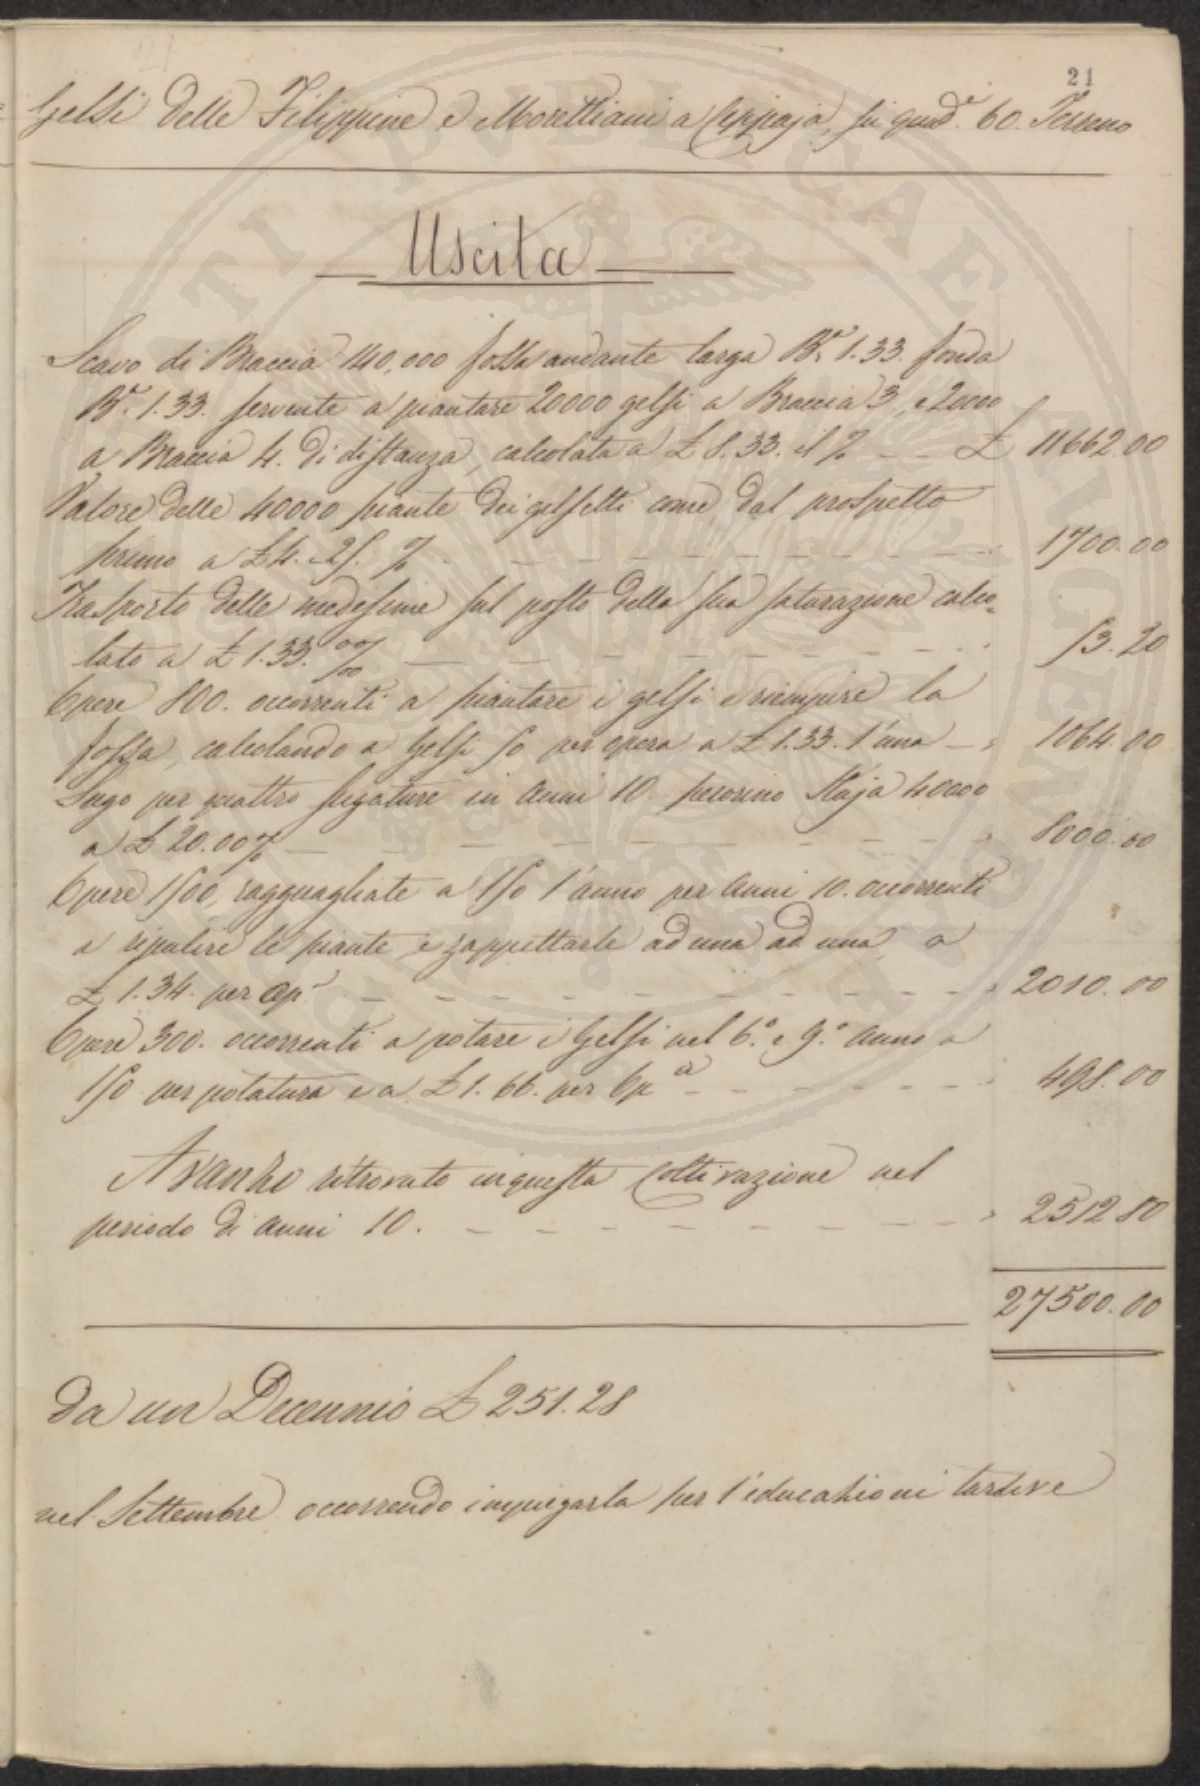 21
Gelsi delle Filippine e Morettiani a Ceppaja, su quad.ⁱ 60. Terreno
Uscita
Scavo di Braccia 140,000 fossa andante larga B.ª 1.33. fonda
B.ª 1.33. servente a piantare 20000 gelsi a Braccia 3, e 20000
a Braccia 4. di distanza, calcolata a £ 8.33. il % £ 11662.00
Valore delle 40000 piante dei gelsetti come dal prospetto
primo a £ 4. 25. % 1700.00
Trasporto delle medesime sul posto della sua calco-
lato a £ 1.33. 53.20
Opere 800. occorrenti a piantare i gelsi e riempire la
fossa, calcolando a Gelsi 50 per opera a £ 1.33. l'una 1064.00
Sugo per quattro sugature in anni 10. pecorino Staja 40000
a £ 20.00 % 8000.00
Opere 1500, ragguagliate a 150 l'anno per anni 10. occorrenti
a ripulire le piante, e zappettarle ad una ad una, a
£ 1.34. per op.ª 2010.00
Opere 300. occorrenti a potare i Gelsi nel 6.º e 9.º anno a
150 per potatura e a £ 1.66. per Op.ª 498.00
Avanzo ritrovato in questa coltivazione nel
periodo di anni 10. 2512 80
27500.00
da un Decennio £ 251.28
nel Settembre occorrendo impiegarla per l'educazioni tardive